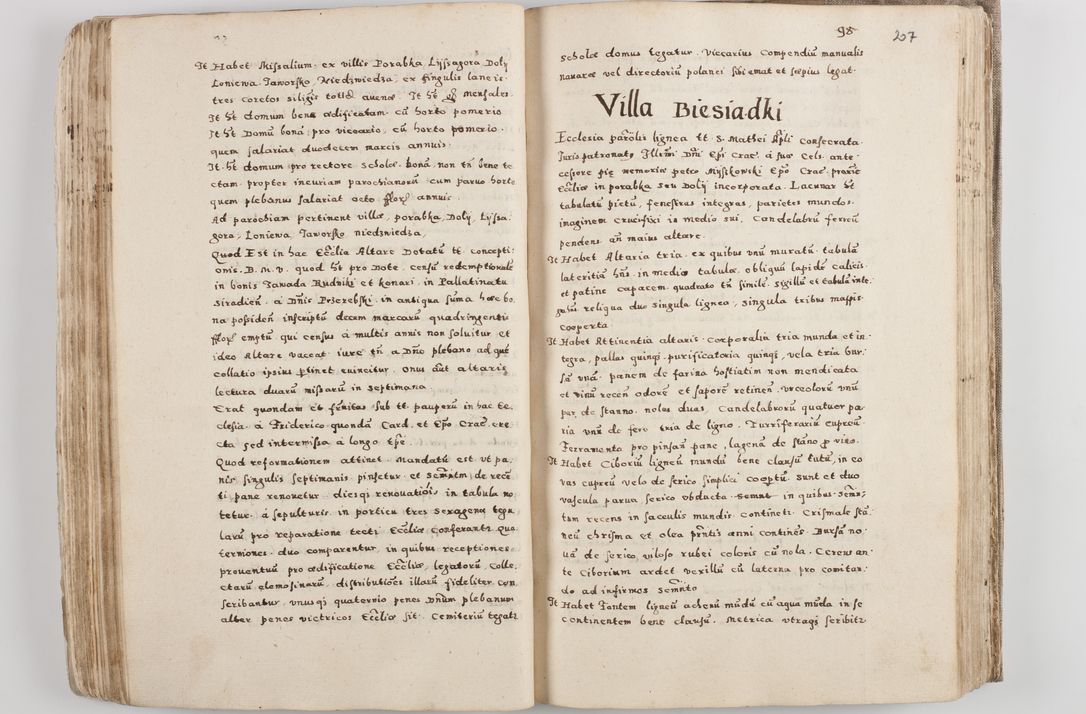 It Habet Missalium ex villis Porabka, Lyssagora Doly
Loniewa Jaworsko Niedzwiedza, ex singulis laneis
tres coretos siligis totid avenae. It ht mensales
It ht domum bene aedificatam cu horto pomerio
It ht Domu bona pro vicario, cu horto pomerio
quem salariat duodecem marcis annuis
It ht domum pro rectore scholae bona non tn bene te
ctam propter incuriam parochianoru cum paruo horto
quem plebanus salariat octo flor annuis
Ad parochiam pertinent villae, porabka, Doly, Lyssa
gora, Loniewa Jaworsko niedzwiedza,
Quod Est in hac Ecclia Altare Dotatu tt concepti
onis B. M. V. quod ht pro Dote censu redemptionale
in bonis Jawada Rudniki et konari in Pallatinatu
Siradien a Dnis Przerebski in antiqua suma haec bo
na possiden inscriptu decem marcaru quadringentis
flor emptu qui census a multis annis non soluitur et
ideo Altare vaccat iure tn a Dno plebano ad que
collatio ipsius pertinet euincitur. onus aut altaris
lectura duaru missaru in septimana
Erat quondam et fenitas sub tt pauperu in hac ec
clesia a Friderico quonda Card. et Epo Crac ere
cta sed intermissa a longo tpe
Quod reformationem attinet Mandatu est ut pa
nis singulis septimanis pinsetur et Semntm de rece
ti pane renouetur diesqi renouationis in tabula no
tetur a sepulturis in porticu tres sexagenae tegu
laru pro reparatione tecti Eccliae Conferantr qua
terniones duo comparentur in quibus receptiones
prouentuu pro aedificatione Eccliae legatoru Colle
ctaru elemosinaru distributiões illaru fideliter con
scribantur vnusqi quaternio penes Dnum plebanum
alter penes victricos Eccliae sit Cemiteriu tegatr
95
207
scholae domus tegatur. Viccarius Compendiu manualis
nauarae vel directoriu polanci sibi emat et saepius legat
Villa Biesiadki
Ecclesia parolis lignea tt S. Mathei Apli Consecrata
Juris patronatg Illimi Dni Epi Crac a suo Cels ante
cessore pie memoriae petro Myszkowski Epo Crac
Eccliae in porabka seu Doly incorporata. Lacunar ht
tabulatu pictu, fenestras integras, parietes mundos
imaginem Crucifixi in medio sui, Candelabru ferreu
pendens an maius altare
It Habet Altaria tria ex quibus vnu muratu tabula
lateritia hns in medio tabulae obliquu lapide calicis
et patine capacem quadrato tn simile sigillu et tabula inte
gam reliqua duo singula lignea, singula tribus mappis
cooperta
It Habet Attinentia altaris Corporalia tria munda et in
tegra, pallas quinqi purificatoria quinqi, vela tria bur
sa vna panem de farina hostiatim non mendicata
et vinu recen odore et sapore retinen vrceoloru vnu
par de stanno nolas duas Candelabroru quatuor pa
ria vnu de fero tria de ligno. Turriferariu cupreu
Ferramenta pro pinsan pane, lagena de stano p vino
It Habet Ciboriu ligneu mundu bene clausu tutu, in eo
vas cupreu velo de serico simplici coopertu sunt et duo
vascula parua serico obducta in quibus Semn
tum recens in sacculis mundis contineti Crismale sta
neu chrisma et olea prntis anni contines Bursa no
ua de serico viloso rubei coloris cu nola. Cereus an
te Ciborium ardet vexillu cu laterna pro comitan
do ad infirmos semnto
It Habet Fontem ligneu aehenu mudu cu aqua muda in se
continentem bene clausu. Metrica vtraqi scribitr